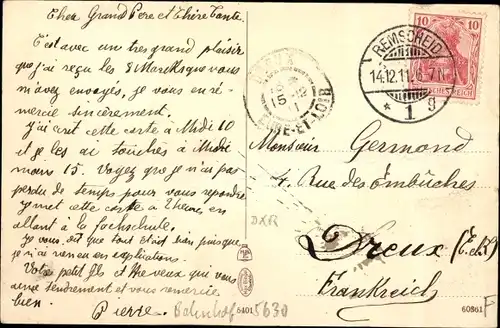 Cher Grand Père et Chère Tante.
C'est avec un tres grand plaisir
que j'ai reçu les 8 Marks que vous
m'avez envoyés, je vous en re-
mercie sincèrement
J'ai écrit cette carte a Midi 10
et je les ai touchés à Midi
moins 15. Voyez que je n'ai pas
perdu de temps pour vous repondre
cette carte a 2 heures en
allant à la Fochschule.
Je vous dit que tout était bien puisque
je n'ai rien en explications.
Votre petit fils et Neveux qui vous
aime tendrement et vous remercie
bien.
Pierre.
Bahnhof 5630
6401
DREUX
15 12
11
EURE-ET-LOIR
REMSCHEID
14.12.11. 6-7 N
* 1 g
10 10
DEUTSCHES REICH
Monsieur Germond
4. Rue des Embûches
DXR
Dreux (E.&L.)
Frankreich
60861
F